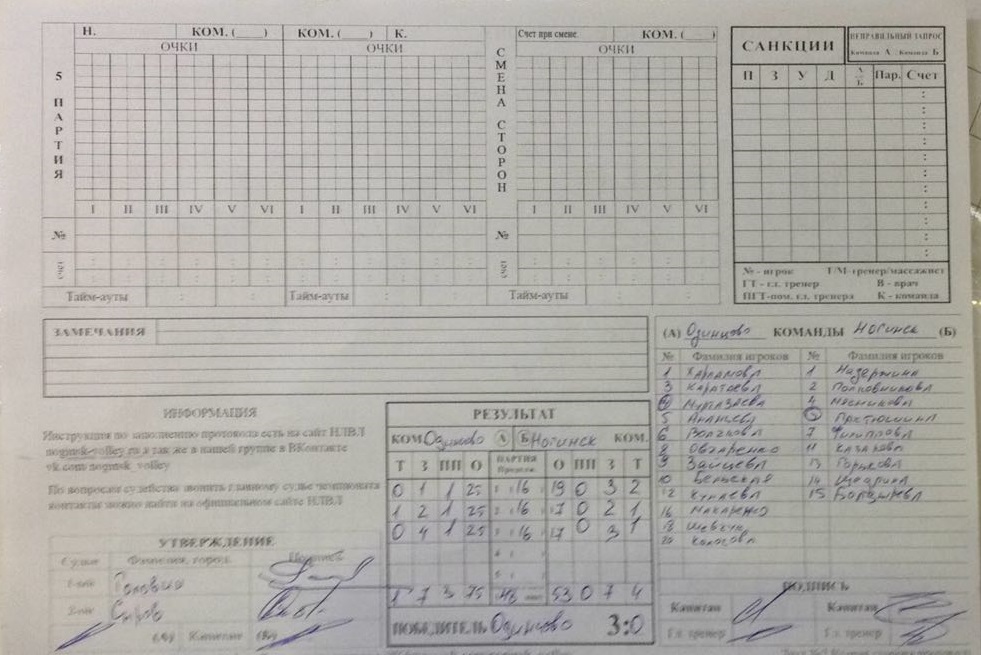 Н. КОМ. (___) КОМ. (___) К.
ОЧКИ ОЧКИ
5 ПАРТИЯ
I II III IV V VI I II III IV V VI
№
: : : : : : : : : : : :
Тайм-ауты : : Тайм-ауты : :
СМЕНА СТОРОН
Счет при смене КОМ. ( )
ОЧКИ
I II III IV V VI
№
: : : : : :
Тайм-ауты : :
САНКЦИИ
НЕПРАВИЛЬНЫЙ ЗАПРОС
Команда А Команда Б
П З У Д А Б Пар. Счет
№ - игрок Т/М-тренер/массажист
ГТ - гл. тренер В - врач
ПГТ-пом. гл. тренера К - команда
ЗАМЕЧАНИЯ
ИНФОРМАЦИЯ
Инструкция по заполнению протокола есть на сайт НЛВЛ
noginsk-volley.ru а так же в нашей группе в ВКонтакте
vk.com/noginsk_volley
По вопросам судейства звонить главному судье чемпионата
контакты можно найти на официальном сайте НЛВЛ
УТВЕРЖДЕНИЕ
Судьи Фамилия, город Подпись
1-ый
2-ой Серов
(А) Капитаны (Б)
РЕЗУЛЬТАТ
КОМ Одинцово А Б Ногинск КОМ.
Т З ПП О ПАРТИЯ О ПП З Т
0 1 1 25 16 19 0 3 2
1 2 1 25 16 17 0 2 1
0 4 1 25 16 17 0 3 1
1 7 3 75 48 53 0 7 4
ПОБЕДИТЕЛЬ Одинцово 3:0
(А) Одинцово КОМАНДЫ Ногинск (Б)
№ Фамилия игроков № Фамилия игроков
1 Харламова 1
3 Каратаева 2 Половникова
4 Муртазаева 4 Мясникова
5
6 Волчкова 7 Филиппова
8 Овчаренко 11 Казакова
9 Зайцева 13 Горькова
10 Бельская 14
12 15
16 Макаренко
18 Шевчук
20
ПОДПИСЬ
Капитан Капитан
Гл. тренер Гл. тренер